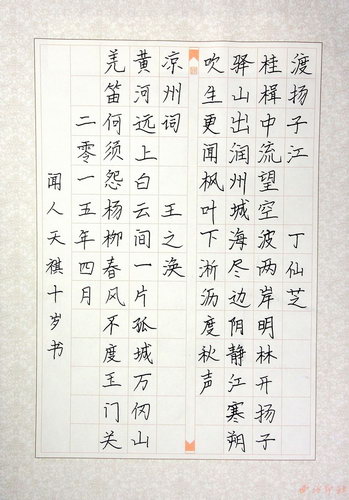 渡扬子江 丁仙芝
桂楫中流望空波两岸明林开扬子
驿山出润州城海尽边阴静江寒朔
吹生更闻枫叶下淅沥度秋声
凉州词 王之涣
黄河远上白云间一片孤城万仞山
羌笛何须怨杨柳春风不度玉门关
二零一五年四月
闻人天祺十岁书